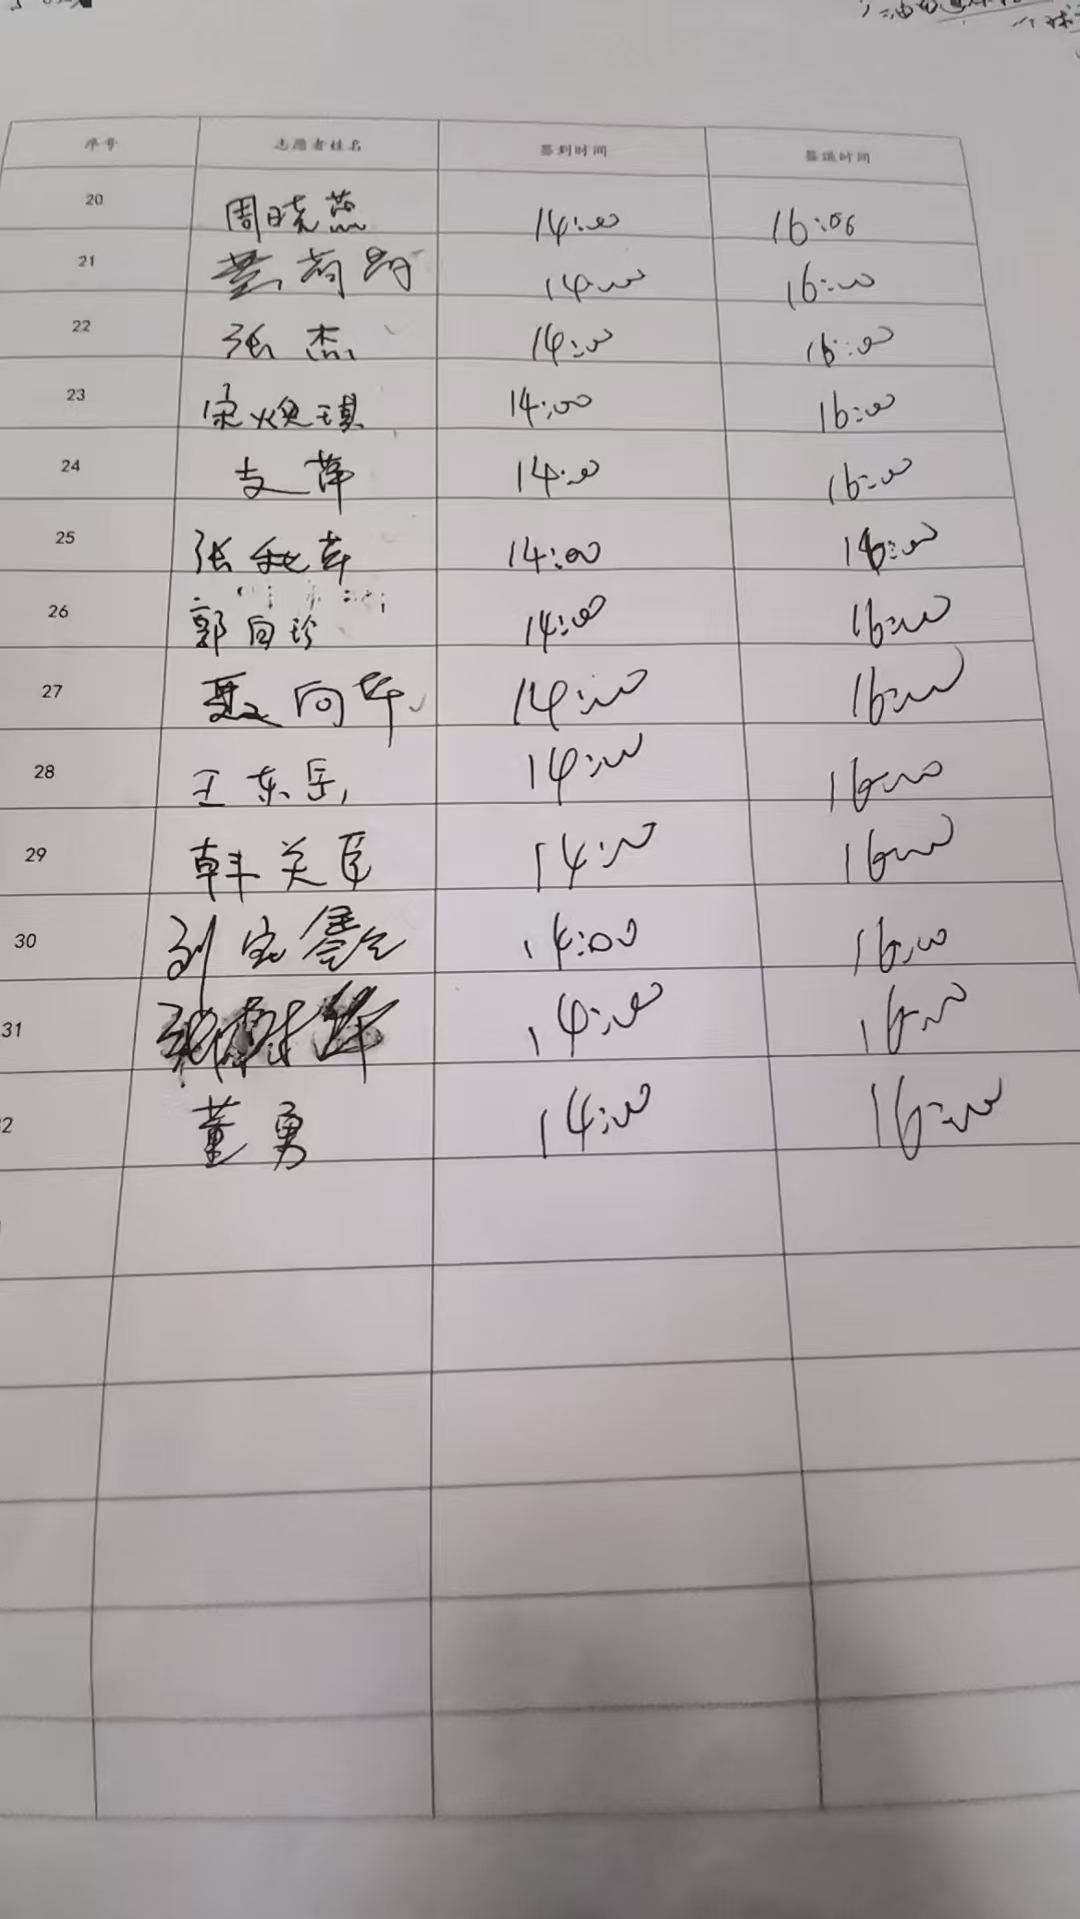 序号 志愿者姓名 签到时间 签退时间
20 周晓燕 14:00 16:06
21 14:00 16:00
22 张杰 14:00 16:00
23 宋焕琪 14:00 16:00
24 支萍 14:00 16:00
25 张秋苹 14:00 16:00
26 郭向珍 14:00 16:00
27 聂向华 14:00 16:00
28 王东岳 14:00 16:00
29 韩关臣 14:00 16:00
30 刘宝 14:00 16:00
31 14:00 16:00
2 董勇 14:00 16:00